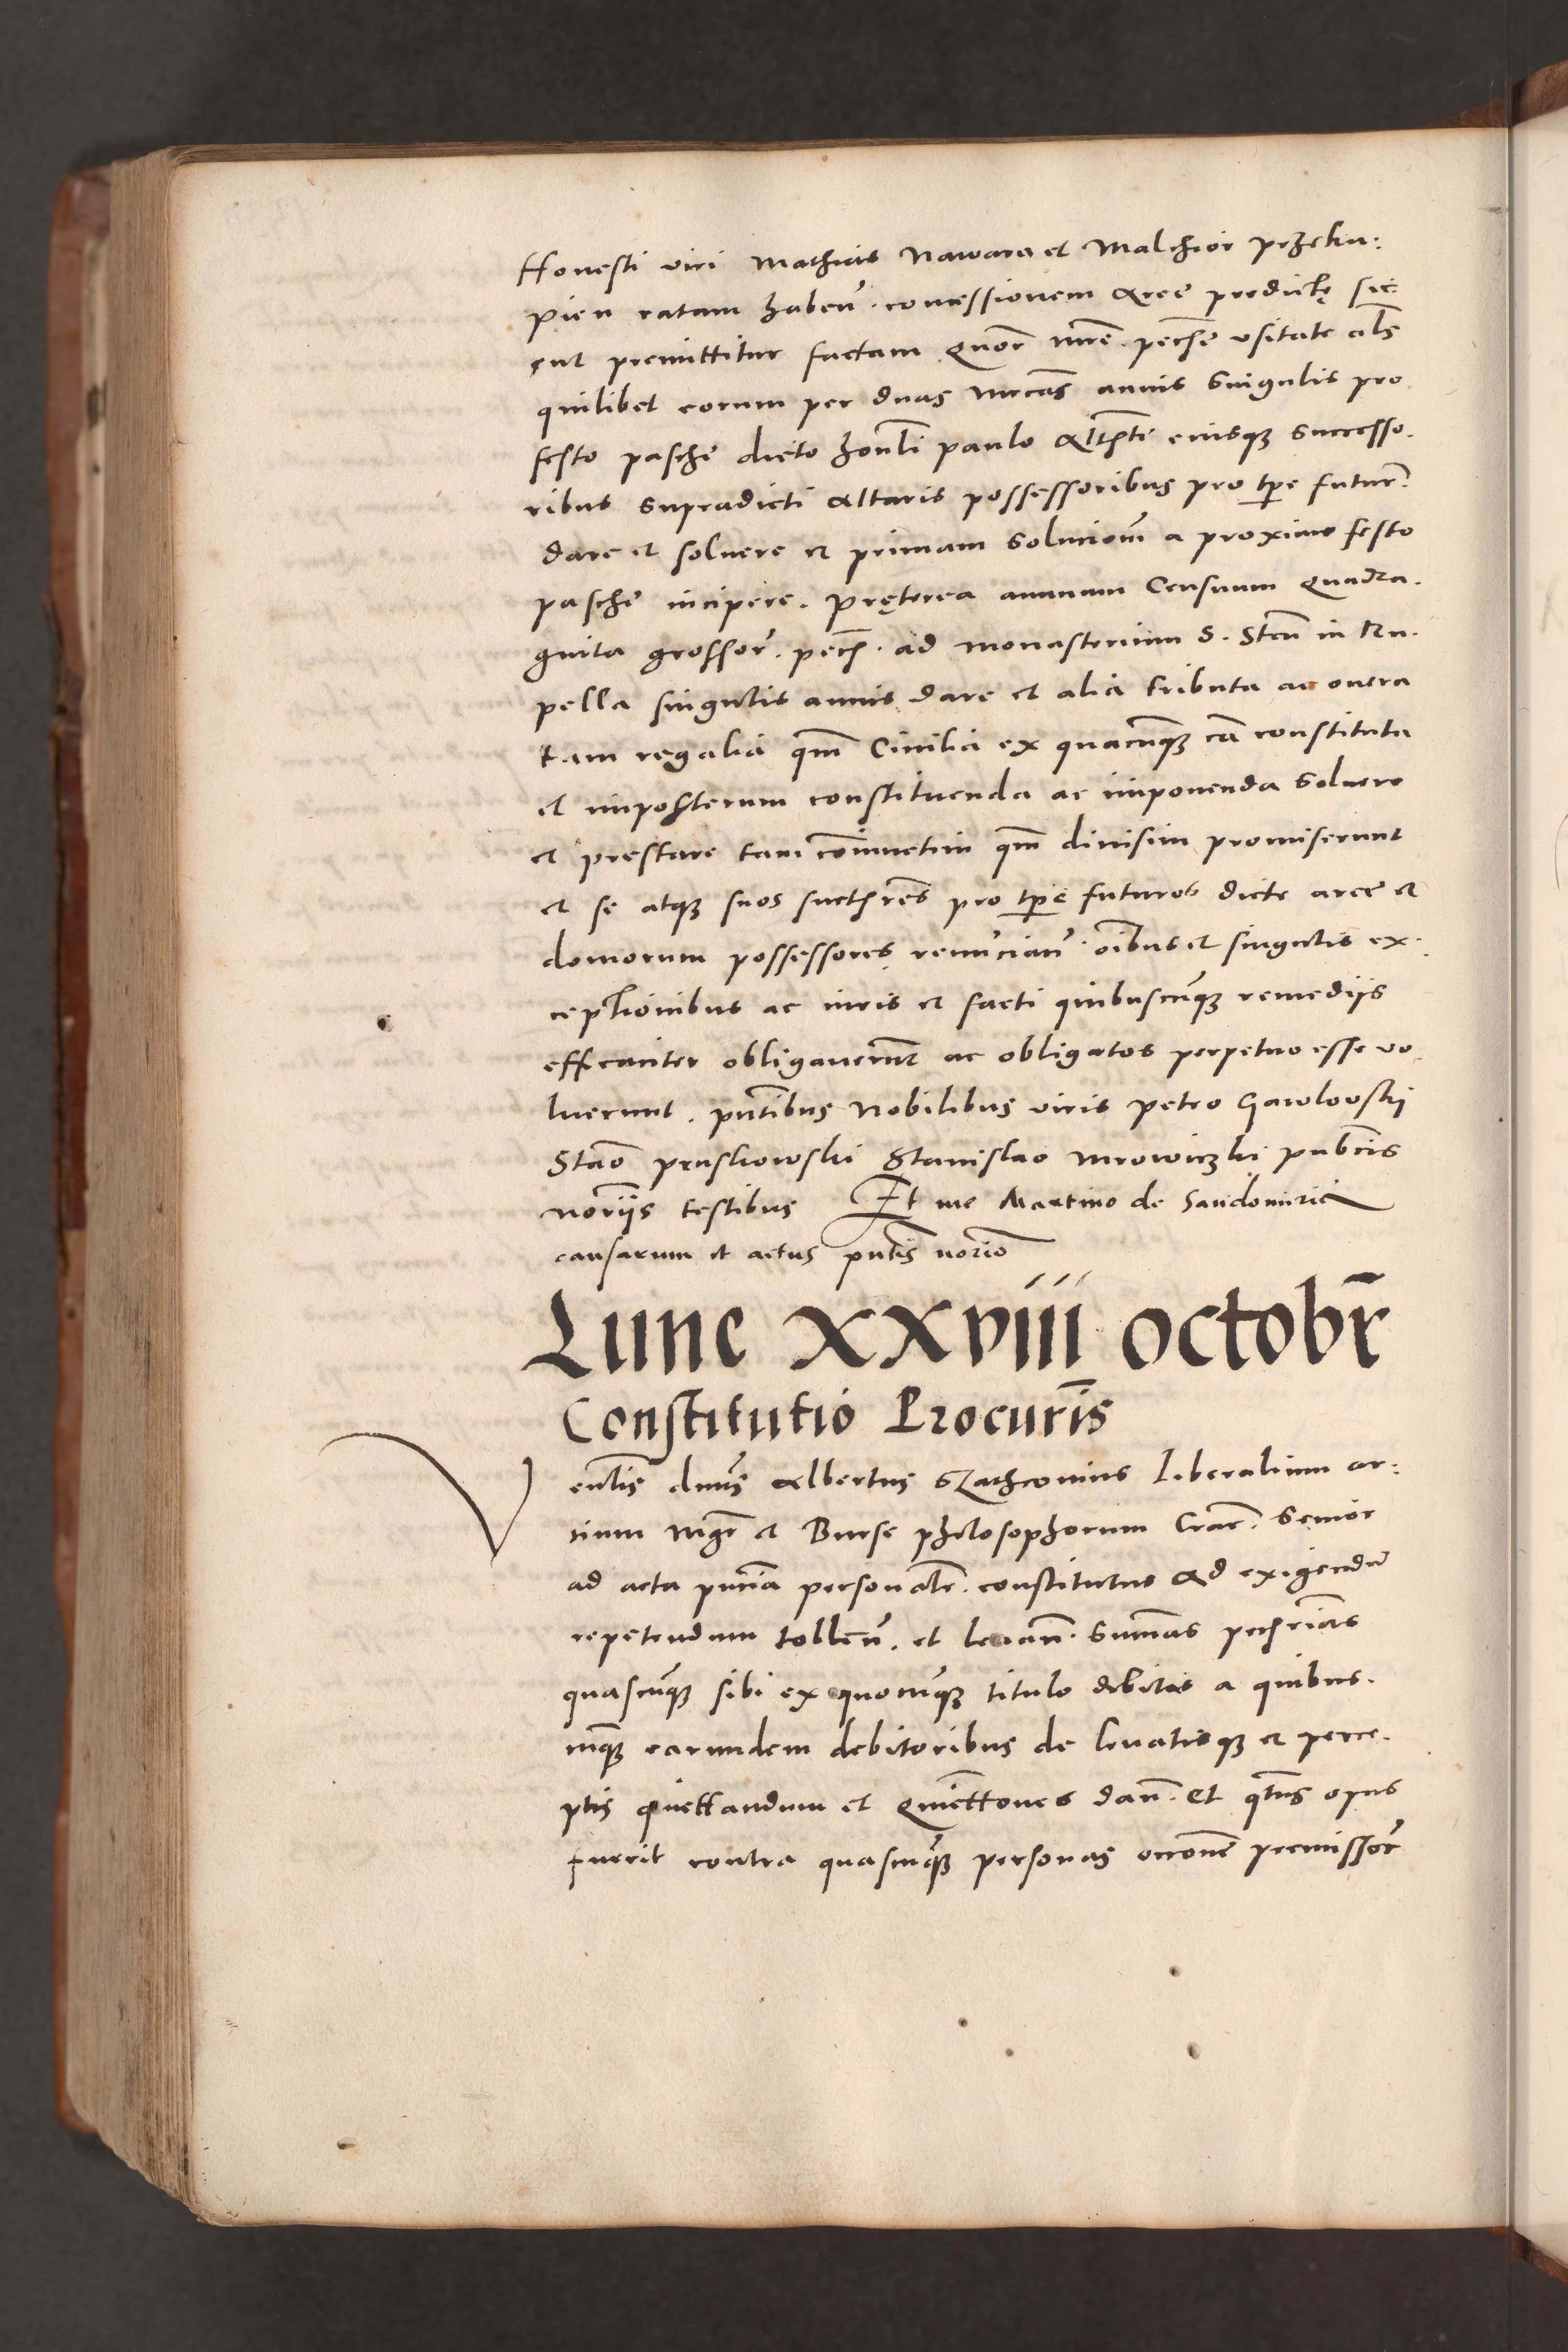 Honesti viri Mathias Nawara et Malchior przeku:
pien ratam haben̄. concessionem aree predictę sic:
cut premittitur factam quor̄ mr̄e. pec̄he usitate al̄s
quilibet eorum per duas mrcas̄ annis singulis pro
festo pasche dicto hon̄li paulo altīsti eiusqꝫ successo.
ribus supradicti altaris possessoribus pro tp̄e futur̄.
dare et soluere et primam solucioēm a proximo festo
pasche incipere. Pręterea annuum Censuum Quadra.
ginta grossor̄. pec̄h. ad monasterium S. Stan̄ in Ru.
pella singulis annis dare et alia tributa ac onera
tam regalia qm̄ Ciuilia ex quacūqꝫ cā constituta
et imposterum constituenda ac imponenda soluere
et prestare tam cōniunctim qm̄ diuisim promiserunt
et se atqꝫ suos sucthres̄ pro tp̄e futuros dicte aree et
domorum possessores renūcian̄. oībus et singulis ex.
ceptionibus ac iuris et facti quibuscūqꝫ remedijs
efficaciter obligauerūt ac obligatos perpetuo esse vo
luerunt. pn̄tibus Nobilibus viris Petro Gawlowskj
Stāo pruskowski Stanislao mrowiczki pub̄cis
nor̄ijs testibus Et me Martino de Sandomiria
causarum et actus pn̄tis nor̄io
Lune XXviii octobr̄
Constitutio Procur̄is
Ven̄lis dn̄us Albertus Szathcouius Liberalium ar:
tium mgr̄ et Burse philosophorum Crac̄. Senior
ad acta pn̄cia personal̄r. constitutus ad exigendū
repetendum tollen̄. et leuan̄. summas pecūrias
quascūqꝫ sibi ex quocūqꝫ titulo debitas a quibus.
cūqꝫ earundem debitoribus de leuatisqꝫ et perce.
ptis quiettandum et Quiettōnes dan̄. et qt̄us opus
fuerit contra quascūqꝫ personas occōne premissor̄